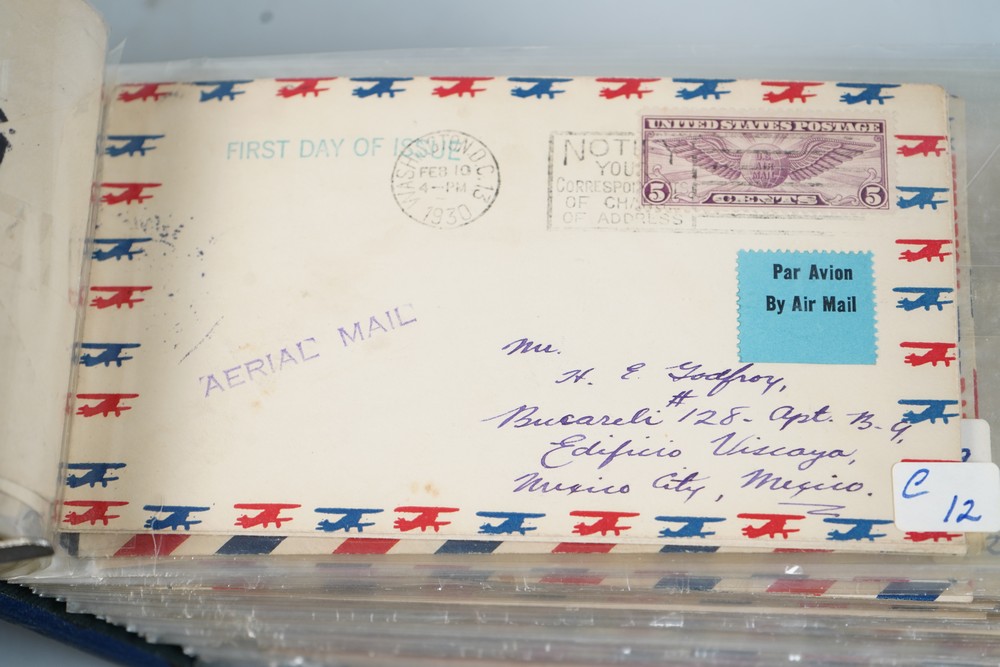 FIRST DAY OF ISSUE
WASHINGTON D.C. 13
FEB 10
4-PM
1930
NOTIFY
YOUR
CORRESPONDENTS
OF CHANGE
OF ADDRESS
UNITED STATES POSTAGE
U.S.
AIR
MAIL
5 CENTS 5
Par Avion
By Air Mail
AERIAL MAIL
Mr.
H. E. Godfroy,
Bucareli #128- Apt. B-9,
Edificio Viscaya,
Mexico City, Mexico.
C
12